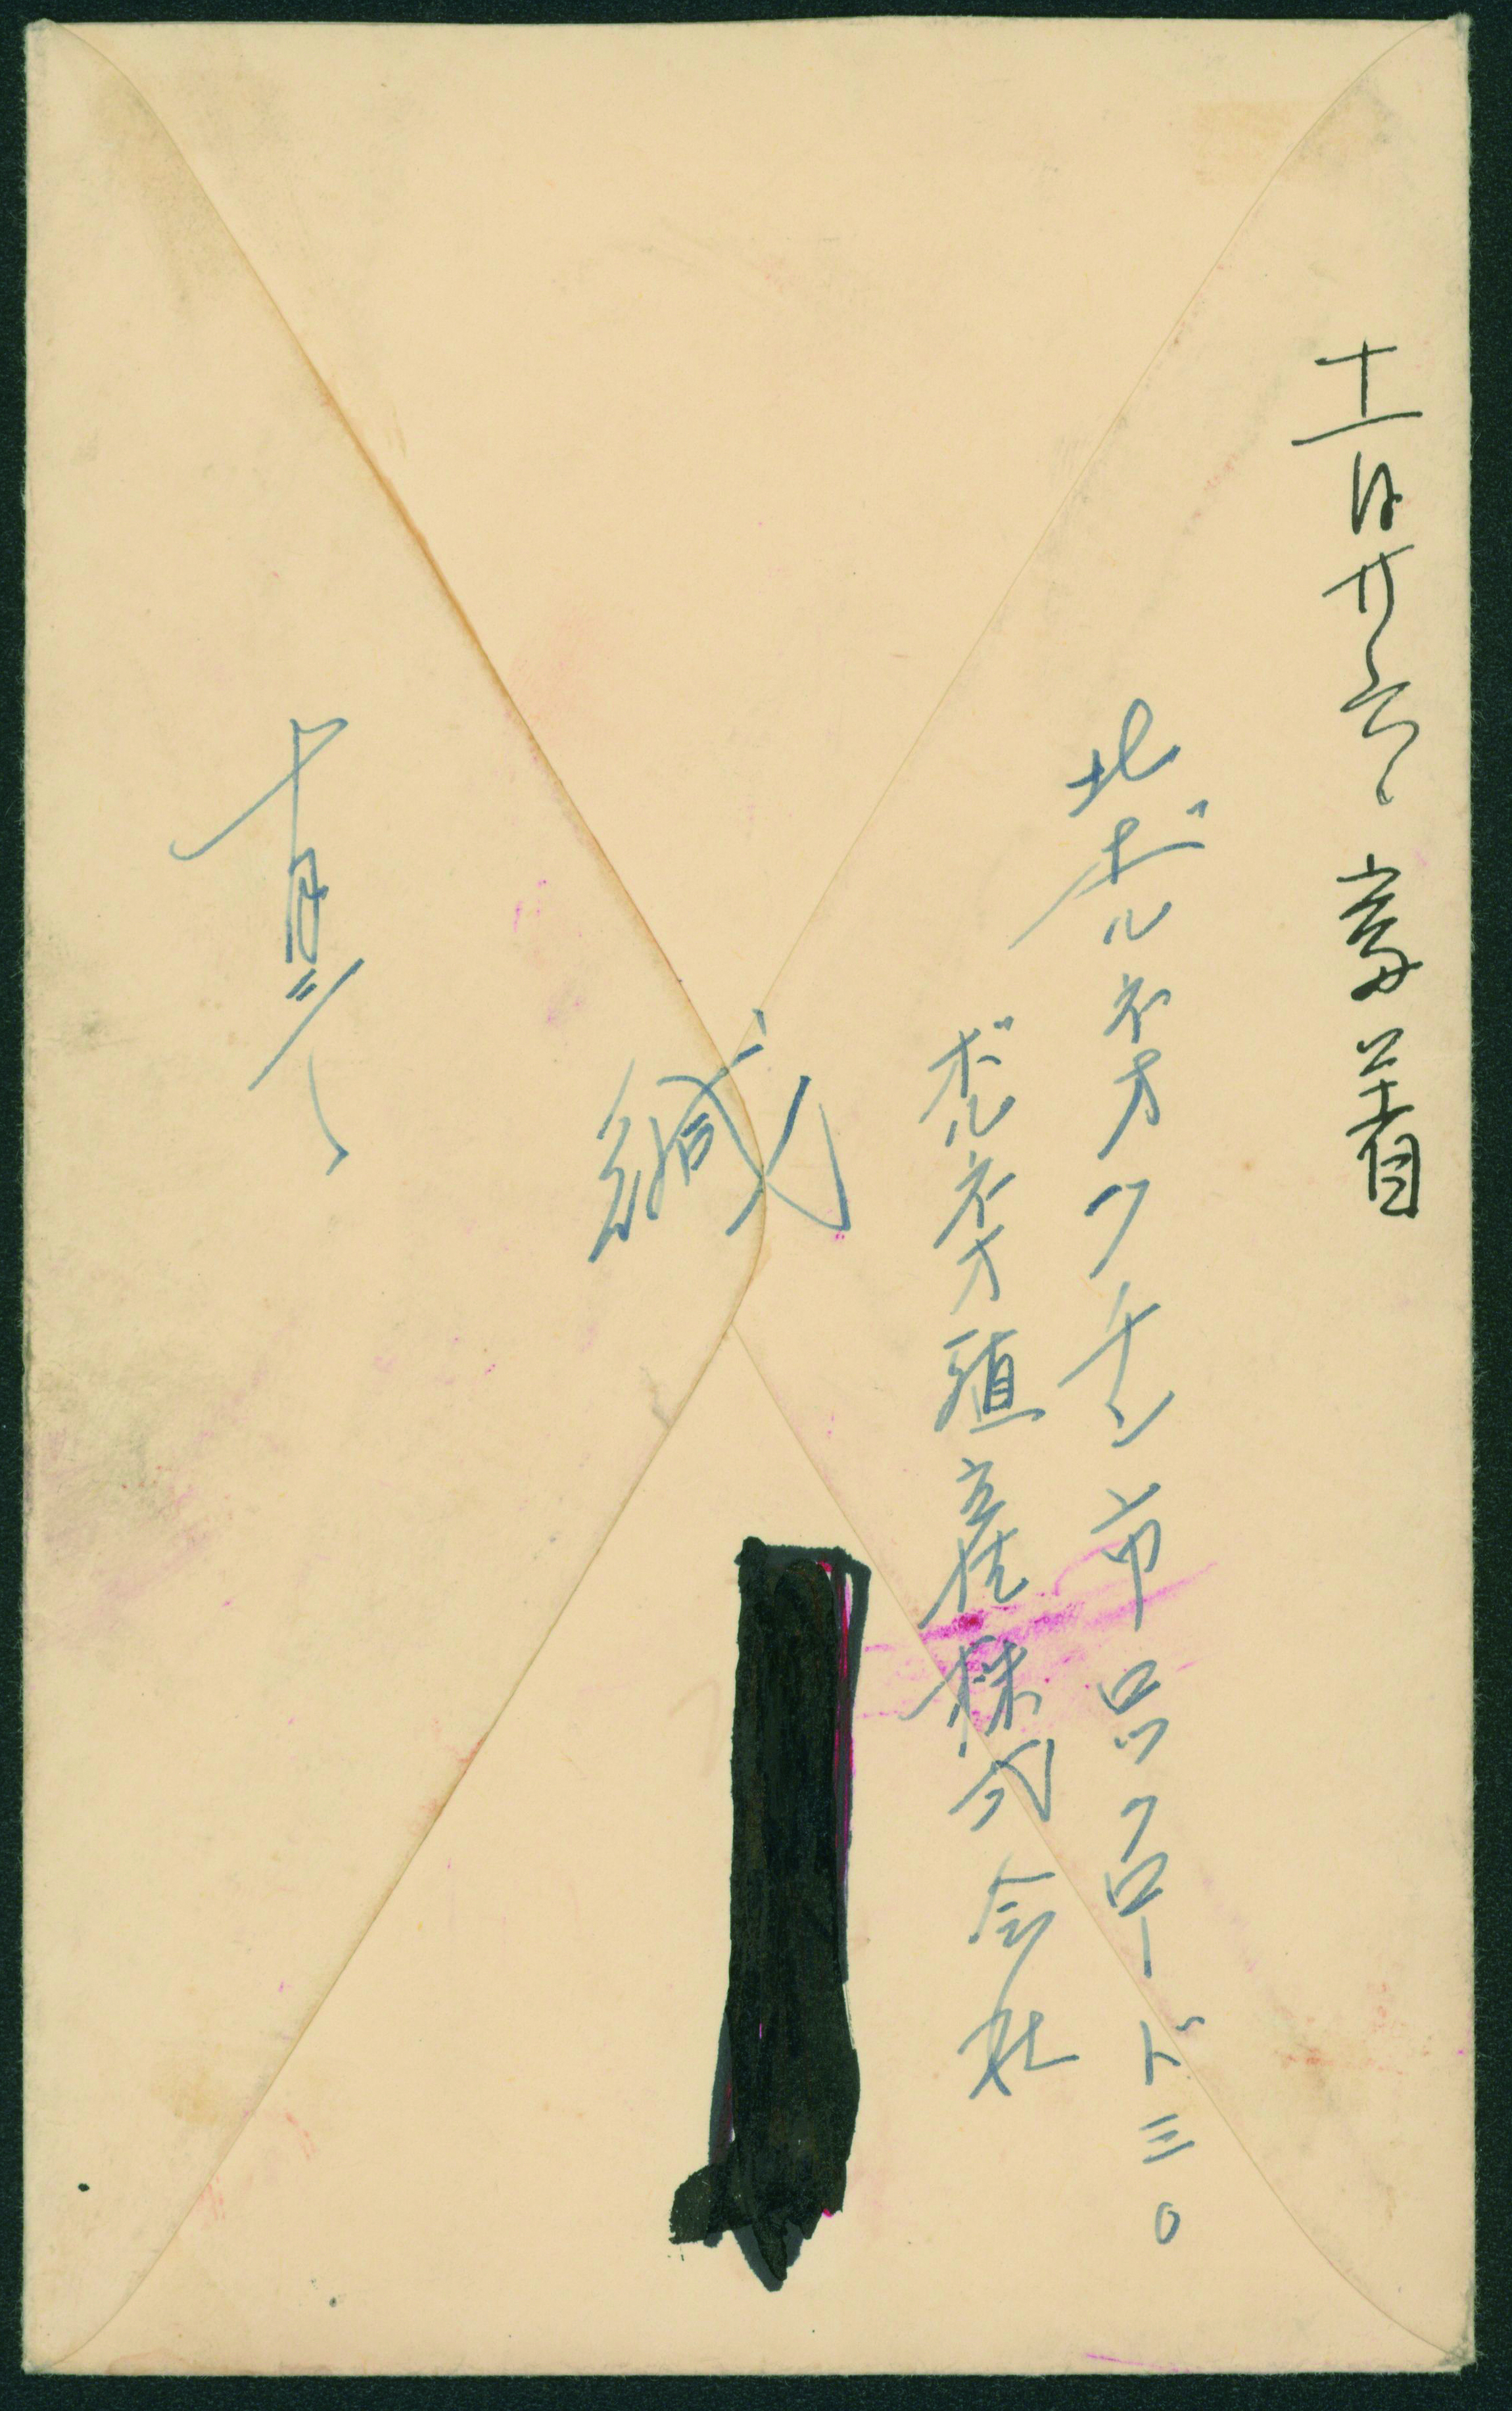 十一月廿六日 着
北ボルネオクチン市ロックロード三〇
ボルネオ殖産株式会社
緘
十月二八